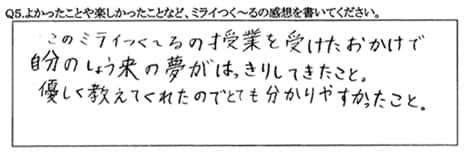 Q5.よかったことや楽しかったことなど、ミライつく~るの感想を書いてください。
このミライつく~るの授業を受けたおかげで
自分のしょう来の夢がはっきりしてきたこと。
優しく教えてくれたのでとても分かりやすかったこと。